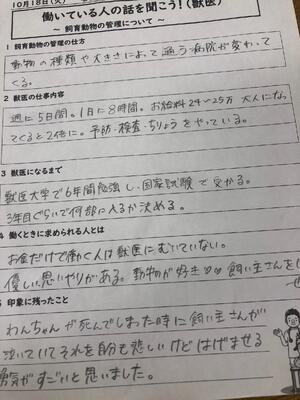 10月18日(火)
働いている人の話を聞こう!(獣医)
~ 飼育動物の管理について ~
1 飼育動物の管理の仕方
動物の種類や大きさによって通う病院が変わって
くる。
2 獣医の仕事内容
週に5日間。1日に8時間。お給料24〜25万 大人になっ
てくると2倍に。予防・検査・ちりょうをやっている。
3 獣医になるまで
獣医大学で6年間勉強し、国家試験で受かる。
3年目ぐらいで何部に入るか決める。
4 働くときに求められる人とは
お金だけで働く人は獣医にむいていない。
優しい、思いやりがある。動物が好き♡♡ 飼い主さんを
5 印象に残ったこと
わんちゃんが死んでしまった時に飼い主さんが
泣いていてそれを自分も悲しいけどはげませる
勇気がすごいと思いました。